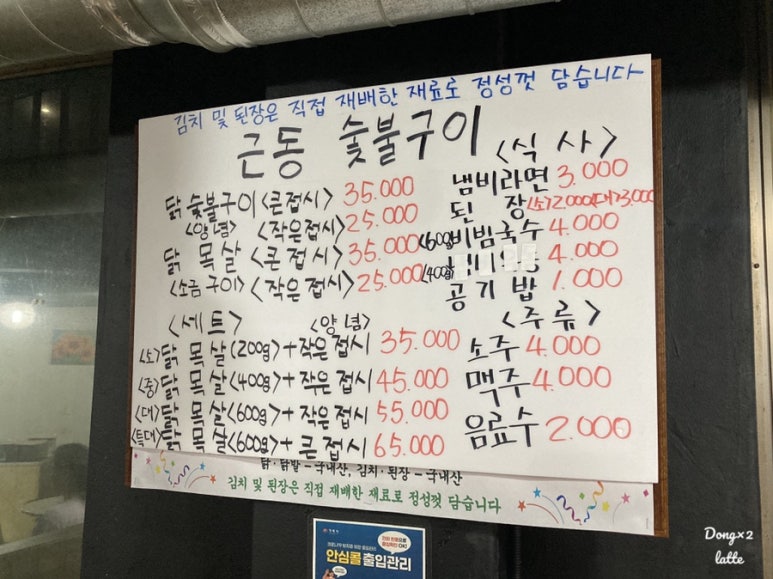 김치 및 된장은 직접 재배한 재료로 정성껏 담습니다
근동 숯불구이
닭 숯불구이 <큰접시> 35.000
<양념> <작은접시> 25.000
닭 목살 <큰접시> 35.000 <600g>
<소금구이> <작은접시> 25.000 <400g>
<식사>
냄비라면 3.000
된장 <소>2.000<대>3.000
비빔국수 4.000
4.000
공기밥 1.000
<세트> <양념>
<소>닭 목살<200g>+작은접시 35.000
<중>닭 목살<400g>+작은접시 45.000
<대>닭 목살<600g>+작은접시 55.000
<특대>닭 목살<600g>+큰접시 65.000
<주류>
소주 4.000
맥주 4.000
음료수 2.000
닭·닭발-국내산, 김치·된장-국내산
김치 및 된장은 직접 재배한 재료로 정성껏 담습니다
안심콜 출입관리
Dong×2
latte